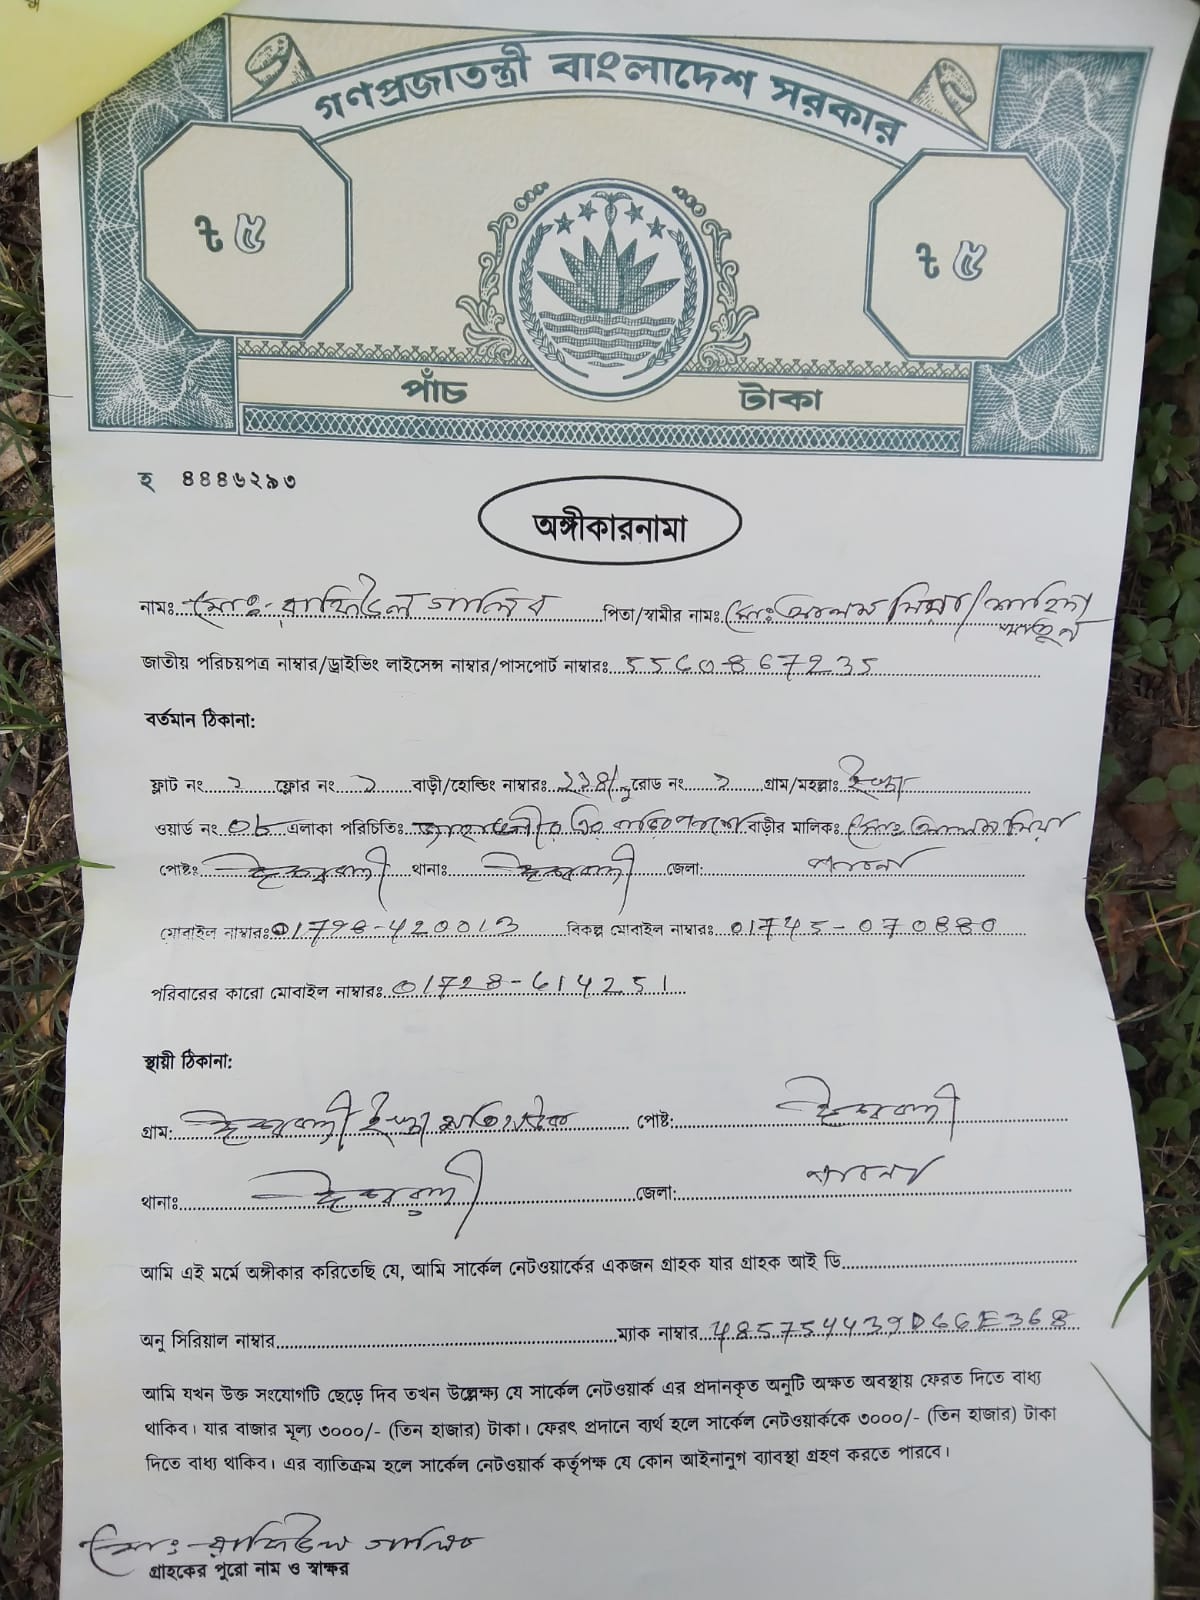 গণপ্রজাতন্ত্রী বাংলাদেশ সরকার
৳ ৫
৳ ৫
পাঁচ টাকা
হ ৪৪৪৬২৯৩
অঙ্গীকারনামা
নামঃ মোঃ- রাফিউল গালিব পিতা/স্বামীর নামঃ মোঃ আলম মিয়া/
জাতীয় পরিচয়পত্র নাম্বার/ড্রাইভিং লাইসেন্স নাম্বার/পাসপোর্ট নাম্বারঃ 5560867235
বর্তমান ঠিকানা:
ফ্লাট নং ফ্লোর নং বাড়ী/হোল্ডিং নাম্বারঃ রোড নং গ্রাম/মহল্লাঃ
ওয়ার্ড নং 08 এলাকা পরিচিতিঃ বাড়ীর মালিকঃ মোঃ আলম মিয়া
পোষ্টঃ ঈশ্বরদী থানাঃ ঈশ্বরদী জেলা: পাবনা
মোবাইল নাম্বারঃ বিকল্প মোবাইল নাম্বারঃ 01745-070880
পরিবারের কারো মোবাইল নাম্বারঃ 01728-614251
স্থায়ী ঠিকানা:
গ্রাম: ঈশ্বরদী পোষ্ট: ঈশ্বরদী
থানাঃ ঈশ্বরদী জেলা: পাবনা
আমি এই মর্মে অঙ্গীকার করিতেছি যে, আমি সার্কেল নেটওয়ার্কের একজন গ্রাহক যার গ্রাহক আই ডি
অনু সিরিয়াল নাম্বার ম্যাক নাম্বার 485754439D66E368
আমি যখন উক্ত সংযোগটি ছেড়ে দিব তখন উল্লেক্ষ্য যে সার্কেল নেটওয়ার্ক এর প্রদানকৃত অনুটি অক্ষত অবস্থায় ফেরত দিতে বাধ্য
থাকিব। যার বাজার মূল্য ৩০০০/- (তিন হাজার) টাকা। ফেরৎ প্রদানে ব্যর্থ হলে সার্কেল নেটওয়ার্ককে ৩০০০/- (তিন হাজার) টাকা
দিতে বাধ্য থাকিব। এর ব্যাতিক্রম হলে সার্কেল নেটওয়ার্ক কর্তৃপক্ষ যে কোন আইনানুগ ব্যাবস্থা গ্রহণ করতে পারবে।
মোঃ-রাফিউল গালিব
গ্রাহকের পুরো নাম ও স্বাক্ষর